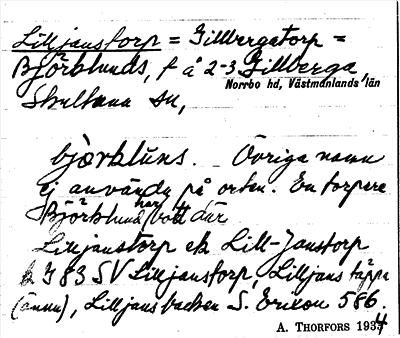 Lilljanstorp = Gillbergatorp =
Björklunds, t å 2-3 Gillberga
Norrbo hd, Västmanlands län
Skultuna sn,
björklúns. Övriga namn
ej använda på orten. En torpare
Björklund har bott där
Lilljanstorp ek Lill-Janstorp
k J 83 SV Lilljanstorp, Lilljans täppa
(ännu), Lilljans backen S. Erixon 586.
A. THORFORS 1934